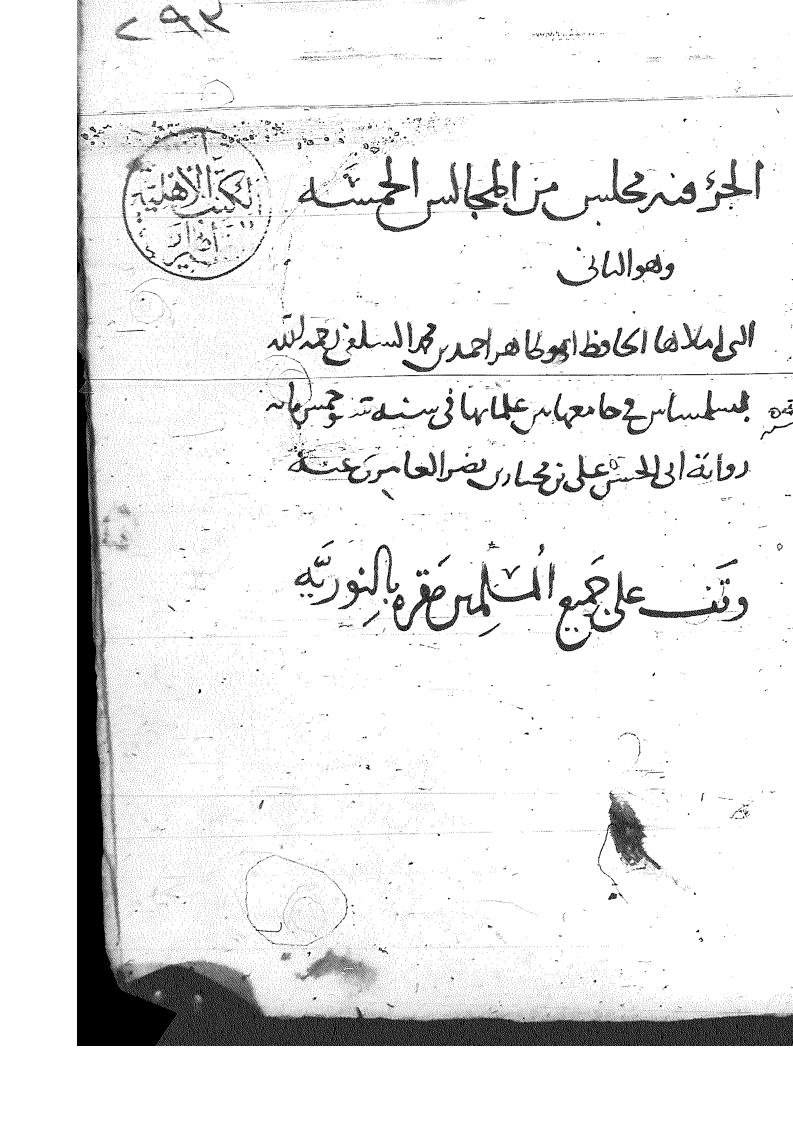 ٢٩٣
الكتب الأهلية
الجزء فيه مجلس من المجالس الخمسة
وهو الثاني
التي املاها الحافظ ابو طاهر احمد بن محمد السلفي رحمه الله
بسلماس في جامعها بين علمائها في سنة ست وخمس مائة
رواية ابي الحسن علي بن مختار بن نصر العامري عنه
وَقف على جَميع المُسلِمين مَقره بالنِوريَّه